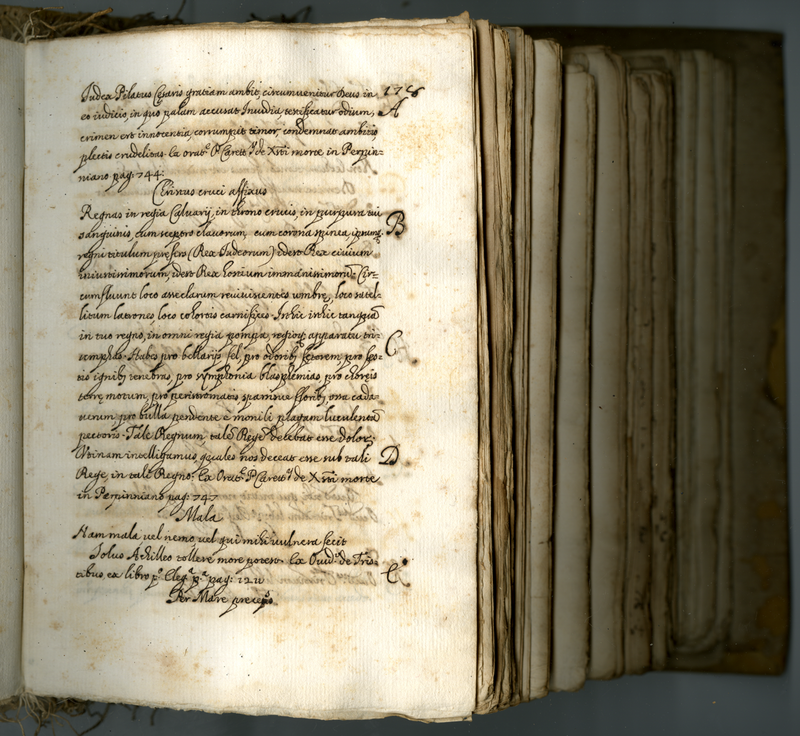 Iudex Pilatus Cęsaris gratiam ambit, circumvenitur Deus in 176
eo iudicio, in quo palam accusat Inuidia, testificatur odium, A
crimen est innocentia, corrumpit timor, condemnat ambitio
plectit crudelitas. Ex orat.e P. Carett.j de Xrti morte in Perpin=
niano pag: 744.
Christus cruci affixus
Regnas in regia Caluarij, in throno crucis, in purpura tui
sanguinis, cum sceptro clauorum, cum corona spinea, B
regni titulum prefers (Rex Iudeorum) idest Rex ciuium
iniustissimorum, idest Rex hostium immanissimorũ. Cir=
cumfluunt loco asseclarum reuiuiscentes umbrę, loco satel=
litum latrones loco cohortis carnifices. Inhic inhic tanquã
in tuo regno, in omni regia pompa, regioq; apparatu tri=
umphas. Habes pro bellarijs fel, pro odorib; fętorem, pro fes= C
tis ignib; tenebras, pro symphonia blasphemias, pro choreis
terrę motum, pro peristromatis sparsiue florib; ossa cada=
uerum pro bulla pendente e monili plagam luculentã
pectoris. Tale Regnum, talẽ Regẽ decebat esse dolor.
Vtinam intelligamus, quales nos deceat esse sub tali D
Rege, in tali Regno. Ex Orat.e P. Carett.j de Xrti morte
in Perpinniano pag: 747
Mala
Nam mala vel nemo vel qui mihi vulnera fecit
Solus Achilleo tollere more potest. Ex Ouid.o de Tris=
tibus, ex libro p.o Eleg.a p.a pag: 122 E
Per Mare